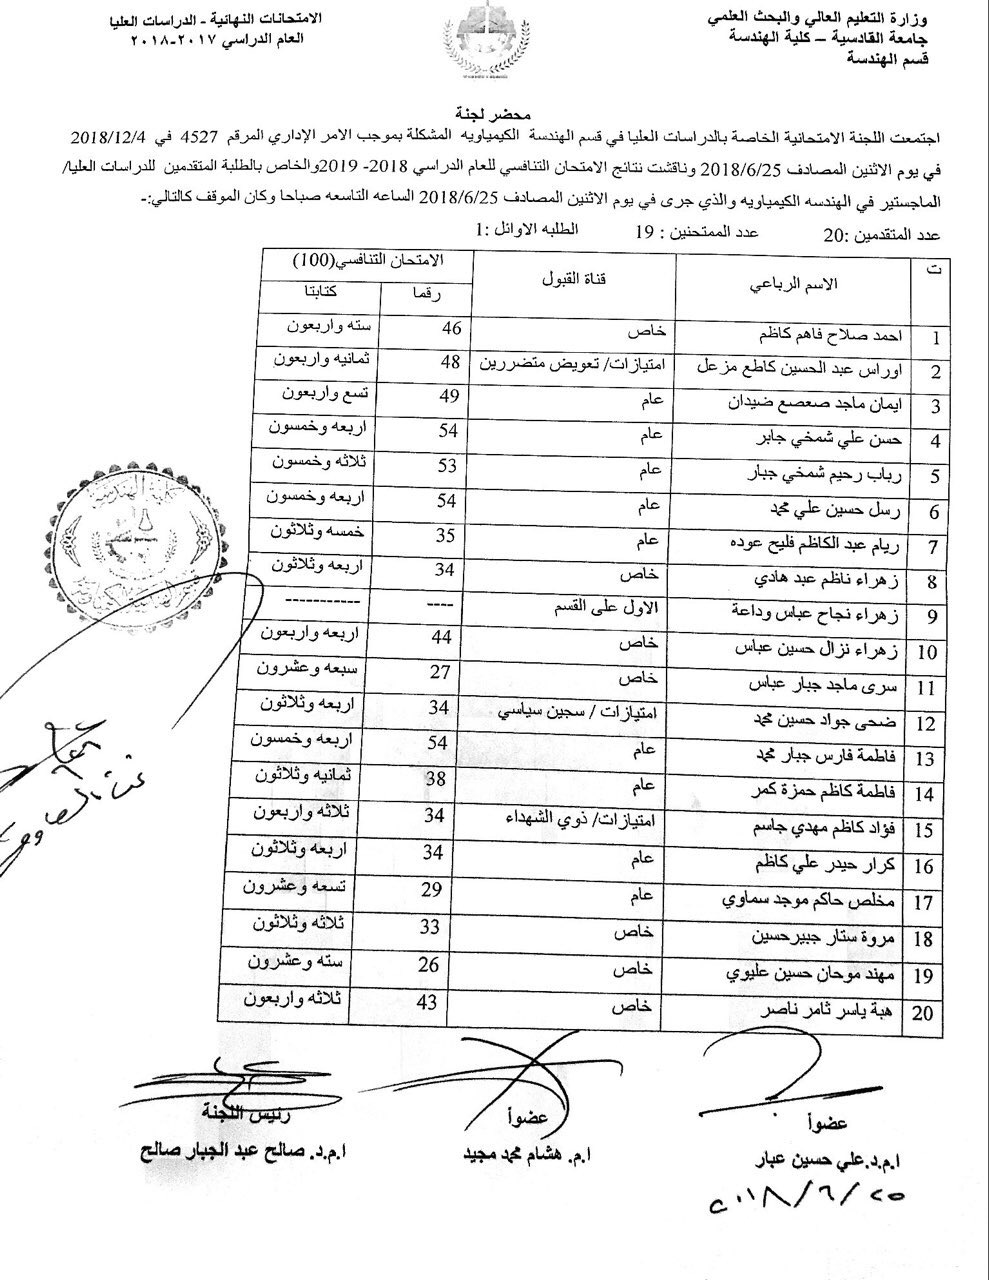 وزارة التعليم العالي والبحث العلمي
جامعة القادسية – كلية الهندسة
قسم الهندسة
الامتحانات النهائية - الدراسات العليا
العام الدراسي ٢٠١٧-٢٠١٨
محضر لجنة
اجتمعت اللجنة الامتحانية الخاصة بالدراسات العليا في قسم الهندسة الكيمياويه المشكلة بموجب الامر الإداري المرقم 4527 في 2018/12/4
في يوم الاثنين المصادف 2018/6/25 وناقشت نتائج الامتحان التنافسي للعام الدراسي 2018- 2019والخاص بالطلبة المتقدمين للدراسات العليا/
الماجستير في الهندسه الكيمياويه والذي جرى في يوم الاثنين المصادف 2018/6/25 الساعه التاسعه صباحا وكان الموقف كالتالي:-
عدد المتقدمين :20 عدد الممتحنين : 19 الطلبه الاوائل :1
ت الاسم الرباعي قناة القبول الامتحان التنافسي(100)
رقما كتابتا
1 احمد صلاح فاهم كاظم خاص 46 سته واربعون
2 اوراس عبد الحسين كاطع مزعل امتيازات/ تعويض متضررين 48 ثمانيه واربعون
3 ايمان ماجد صعصع ضيدان عام 49 تسع واربعون
4 حسن علي شمخي جابر عام 54 اربعه وخمسون
5 رباب رحيم شمخي جبار عام 53 ثلاثه وخمسون
6 رسل حسين علي محمد عام 54 اربعه وخمسون
7 ريام عبد الكاظم فليح عوده عام 35 خمسه وثلاثون
8 زهراء ناظم عبد هادي خاص 34 اربعه وثلاثون
9 زهراء نجاح عباس وداعة الاول على القسم ---- -----------
10 زهراء نزال حسين عباس خاص 44 اربعه واربعون
11 سرى ماجد جبار عباس خاص 27 سبعه وعشرون
12 ضحى جواد حسين محمد امتيازات / سجين سياسي 34 اربعه وثلاثون
13 فاطمة فارس جبار محمد عام 54 اربعه وخمسون
14 فاطمة كاظم حمزة كمر عام 38 ثمانيه وثلاثون
15 فؤاد كاظم مهدي جاسم امتيازات/ ذوي الشهداء 34 ثلاثه واربعون
16 كرار حيدر علي كاظم عام 34 اربعه وثلاثون
17 مخلص حاكم موجد سماوي عام 29 تسعه وعشرون
18 مروة ستار جبيرحسين خاص 33 ثلاثه وثلاثون
19 مهند موحان حسين عليوي خاص 26 سته وعشرون
20 هبة ياسر ثامر ناصر خاص 43 ثلاثه واربعون
كلية الهندسة
عضواً
ا.م.د.علي حسين عبار
٢٠١٨/٦/٢٥
عضواً
ا.م. هشام محمد مجيد
رئيس اللجنة
ا.م.د. صالح عبد الجبار صالح